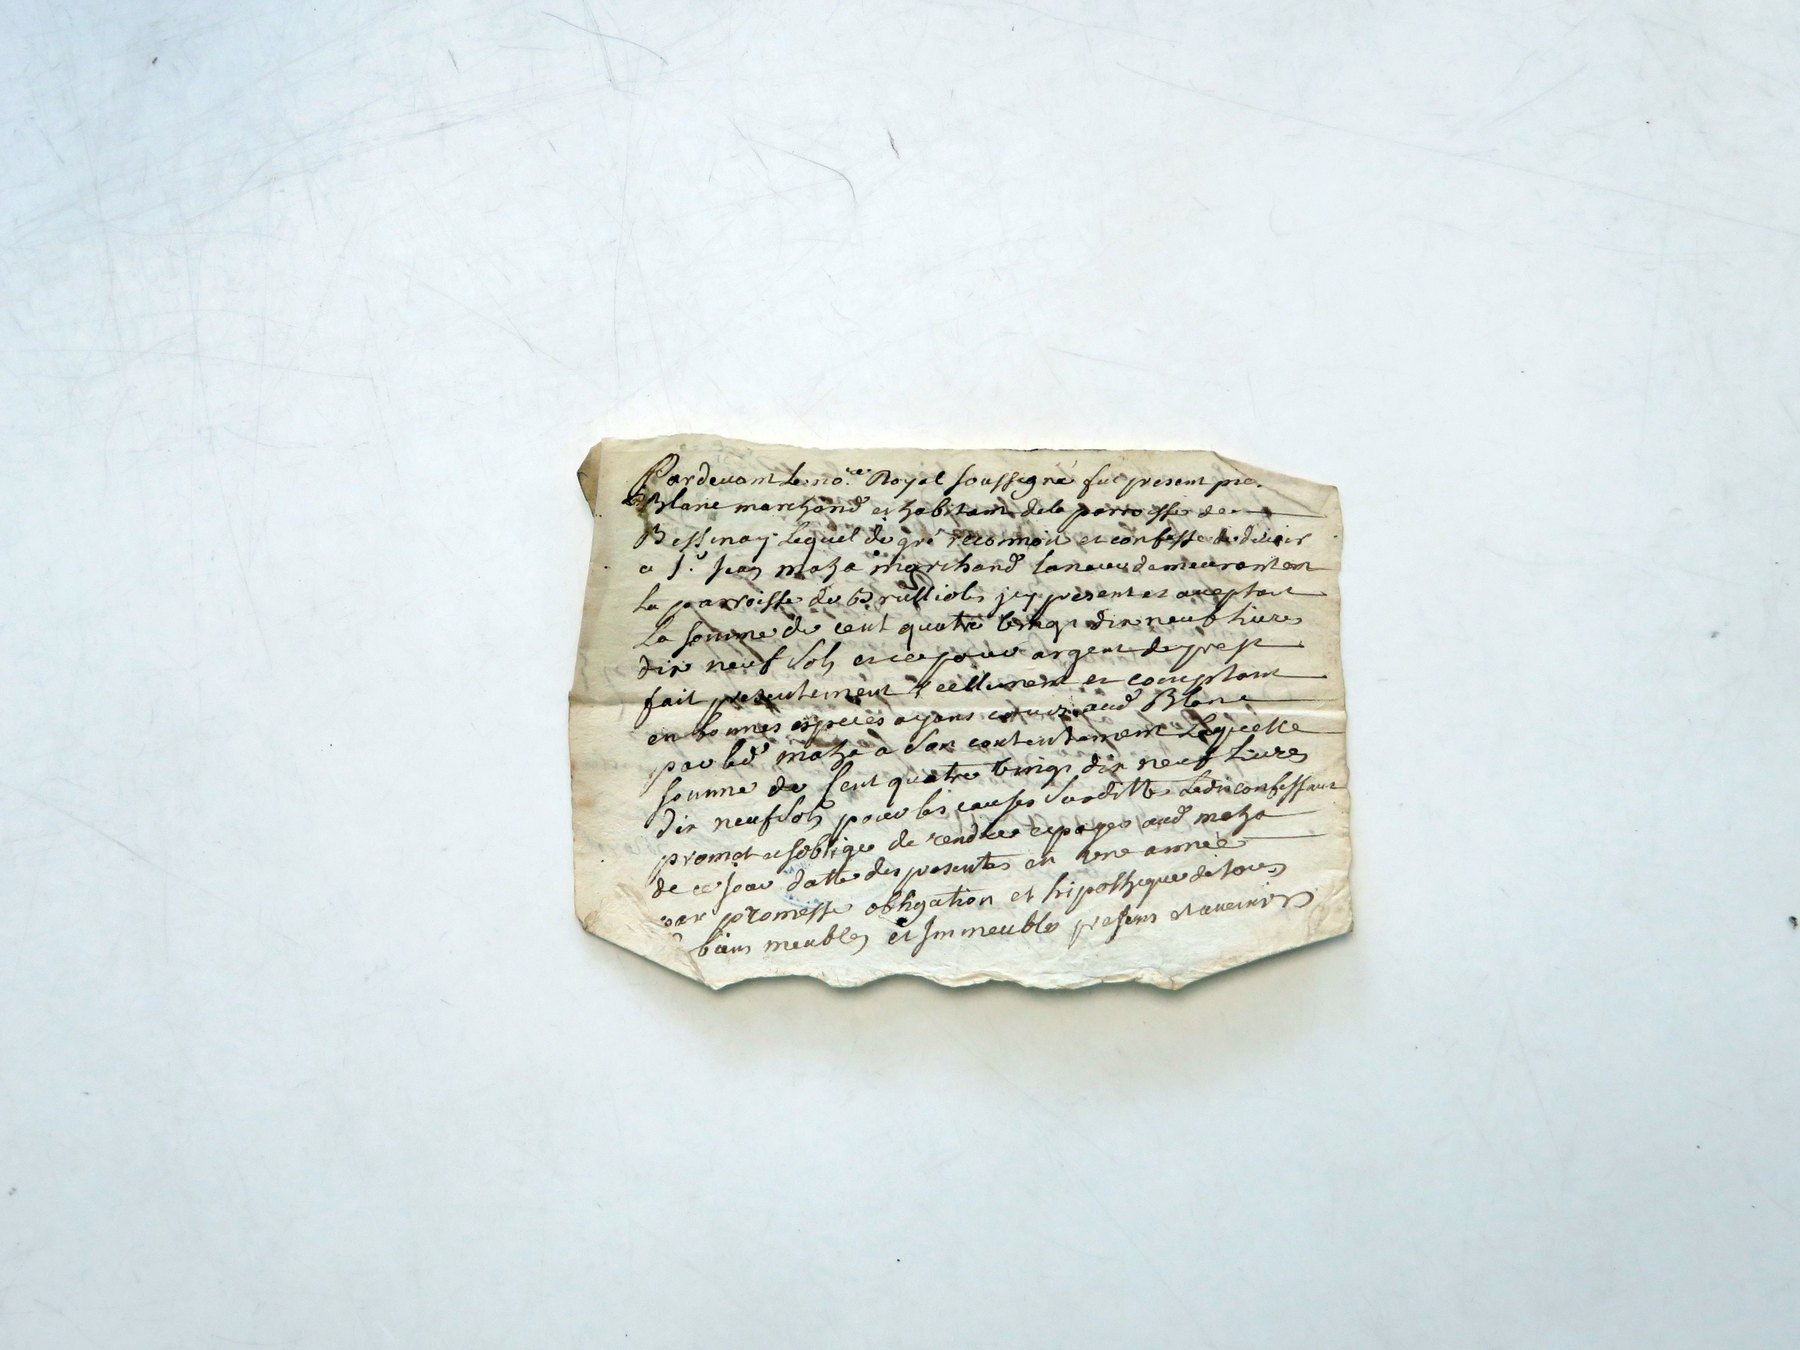 Pardevant le no.re Royal soussigné fut present pre.
Blanc marchand et habitant de la parroisse de
Bessenay lequel de gré reconnoit et confesse de devoir
a s.r Jean maza marchand taneur demeurant en
La parroisse de Brullioles icy present et aceptant
La somme de cent quatre vingt dix neuf livres
dix neuf sols et ce pour argent de prest
fait presentement reellement et comptant
en bonnes especes ayant cours aud Blanc
par led. maza a son contentement Laquelle
somme de Cent quatre vingt dix neuf livres
dix neuf sols pour les causes susdittes Ledit confessant
promet et soblige de rendre et payer aud maza
de ce jour datte des presentes en une année
par promesse obligation et hipotheque de tous
biens meubles et Immeubles presens et avenirs